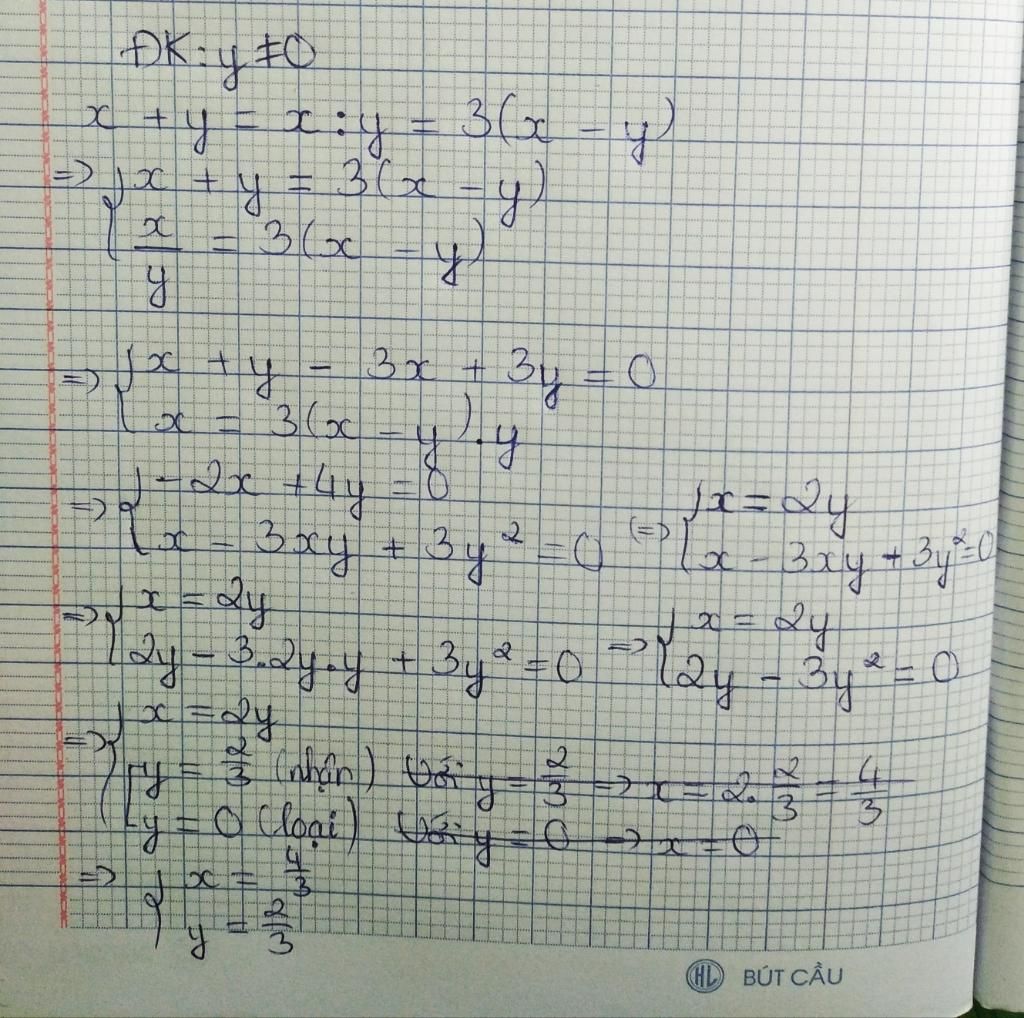 ĐK: y ≠ 0
x + y = x : y = 3(x - y)
=> { x + y = 3(x - y)
x/y = 3(x - y)
=> { x + y - 3x + 3y = 0
x = 3(x - y).y
=> { -2x + 4y = 0 (=> { x = 2y
x - 3xy + 3y² = 0 x - 3xy + 3y² = 0
=> { x = 2y => { x = 2y
2y - 3.2y.y + 3y² = 0 2y - 3y² = 0
=> { x = 2y
[ y = 2/3 (nhận) Với y = 2/3 => x = 2. 2/3 = 4/3
y = 0 (loại) Với y = 0 => x = 0
=> { x = 4/3
y = 2/3
HL BÚT CẦU